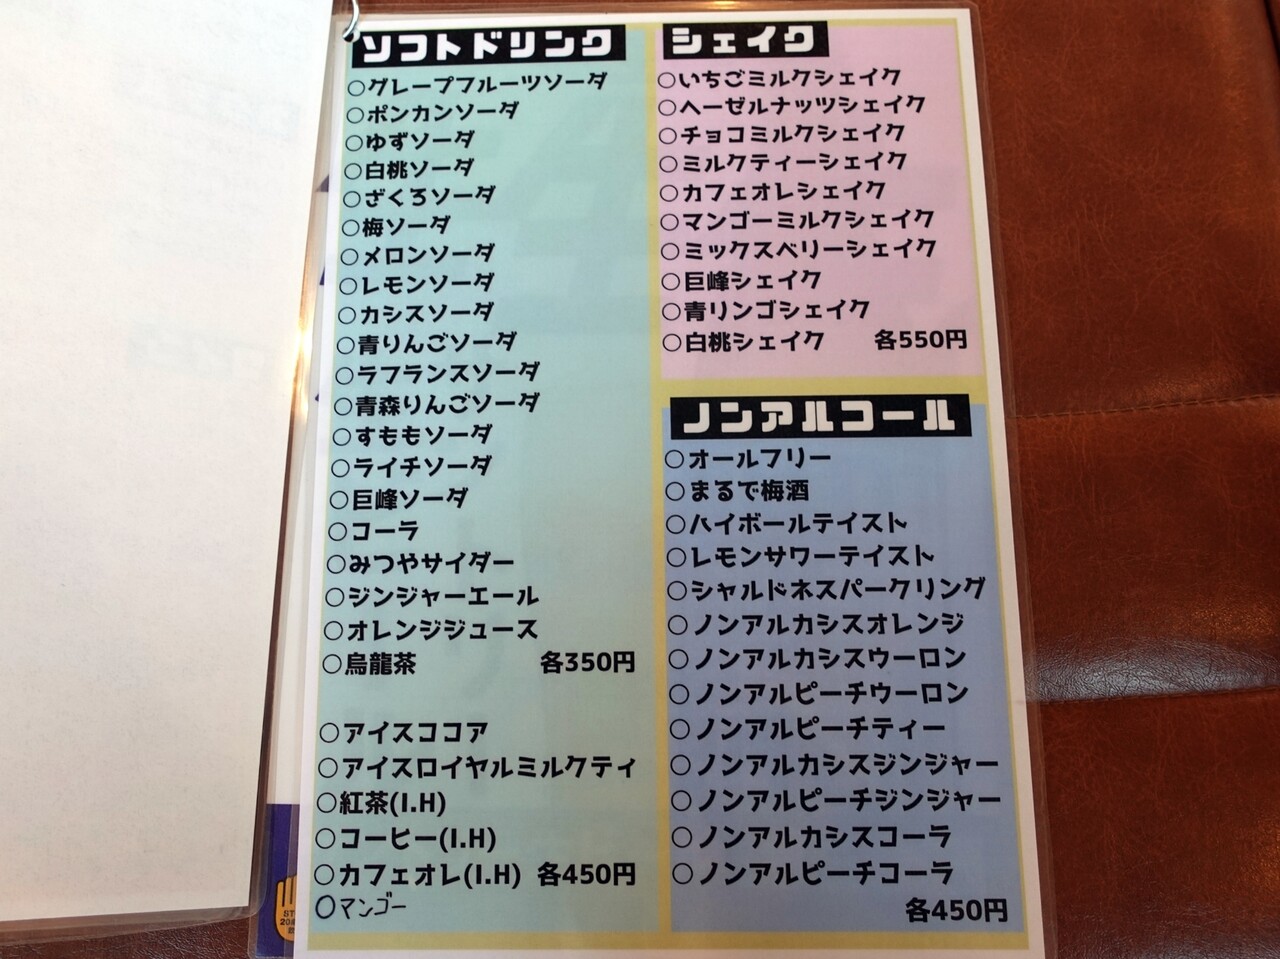 ソフトドリンク
○グレープフルーツソーダ
○ポンカンソーダ
○ゆずソーダ
○白桃ソーダ
○ざくろソーダ
○梅ソーダ
○メロンソーダ
○レモンソーダ
○カシスソーダ
○青りんごソーダ
○ラフランスソーダ
○青森りんごソーダ
○すももソーダ
○ライチソーダ
○巨峰ソーダ
○コーラ
○みつやサイダー
○ジンジャーエール
○オレンジジュース
○烏龍茶 各350円
○アイスココア
○アイスロイヤルミルクティ
○紅茶(I.H)
○コーヒー(I.H)
○カフェオレ(I.H) 各450円
○マンゴー
シェイク
○いちごミルクシェイク
○ヘーゼルナッツシェイク
○チョコミルクシェイク
○ミルクティーシェイク
○カフェオレシェイク
○マンゴーミルクシェイク
○ミックスベリーシェイク
○巨峰シェイク
○青リンゴシェイク
○白桃シェイク 各550円
ノンアルコール
○オールフリー
○まるで梅酒
○ハイボールテイスト
○レモンサワーテイスト
○シャルドネスパークリング
○ノンアルカシスオレンジ
○ノンアルカシスウーロン
○ノンアルピーチウーロン
○ノンアルピーチティー
○ノンアルカシスジンジャー
○ノンアルピーチジンジャー
○ノンアルカシスコーラ
○ノンアルピーチコーラ
各450円